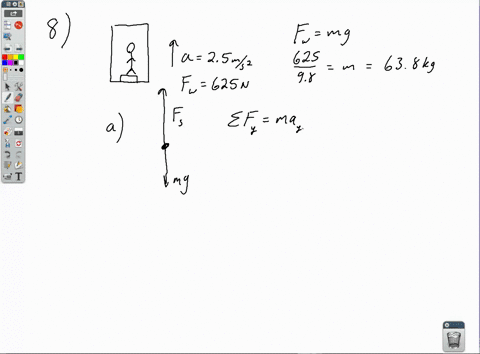 8)
a = 2.5 m/s²
F_w = 625 N
F_w = mg
625/9.8 = m = 63.8 kg
a)
F_s
ΣF_y = ma_y
mg